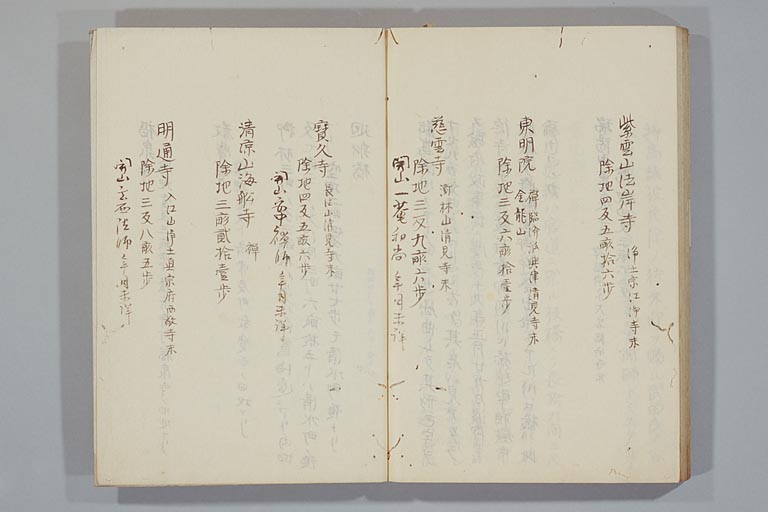 紫雲山法岸寺 浄土宗江浄寺末
除地四反五畝拾六歩
東明院 禅臨済派興津清見寺末
金龍山
除地三反六畝拾壹歩
慈雲寺 林山清見寺末
除地三反九畝六歩
開山一菴和尚 年月未詳
寶久寺 長江山清見寺末
除地四反五畝六歩
開山 禅師 年月未詳
清凉山海舩寺 禅
除地三畝貳拾壹歩
明通寺 入江山浄土真宗府西敎寺末
除地三反八畝五歩
開山 法師 年月未詳